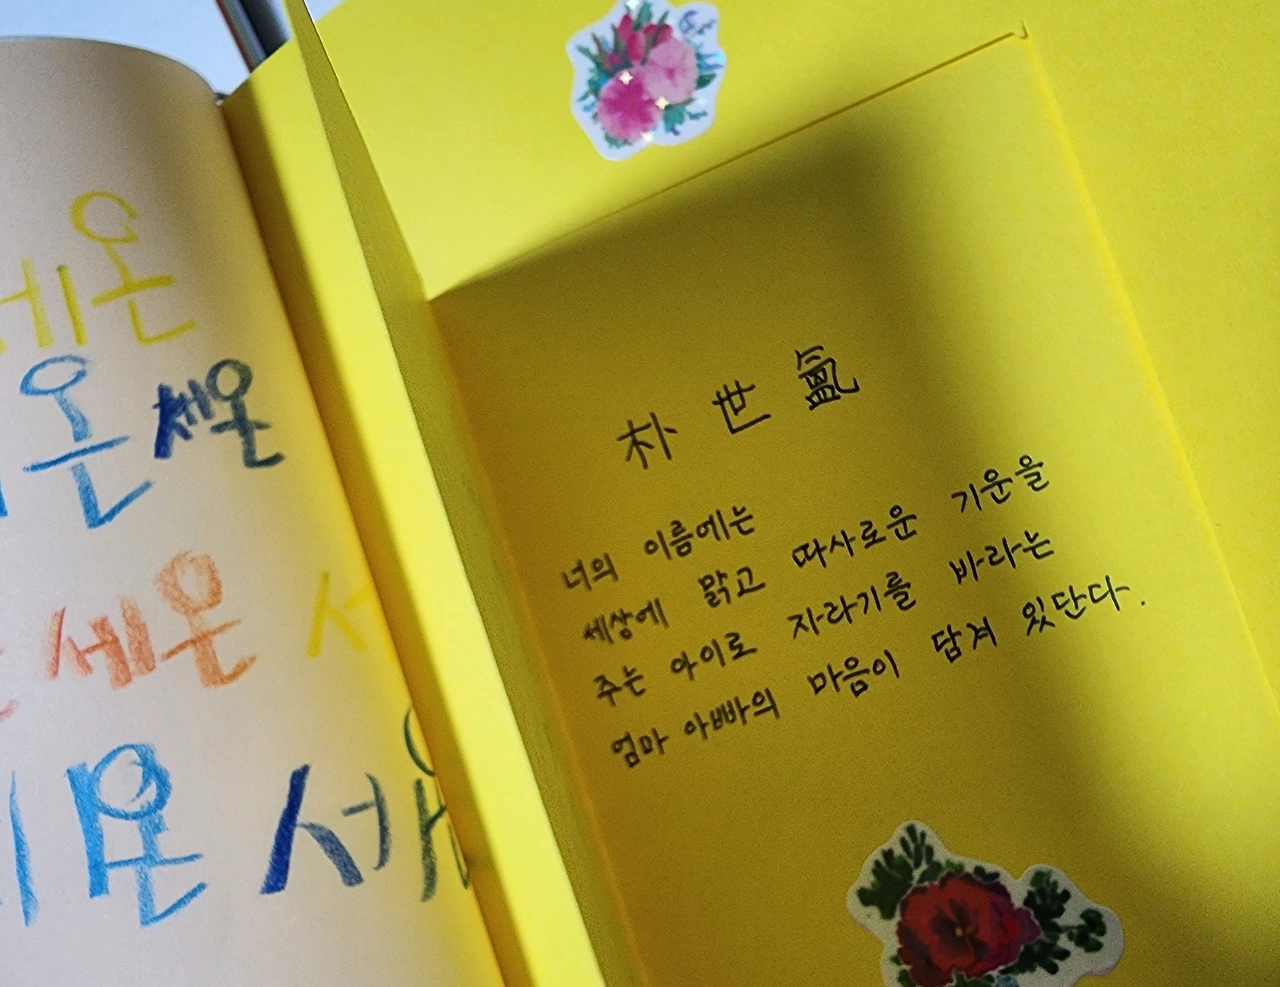 세온
온 세온
세온
온 세
朴 世 氳
너의 이름에는
세상에 맑고 따사로운 기운을
주는 아이로 자라기를 바라는
엄마 아빠의 마음이 담겨 있단다.